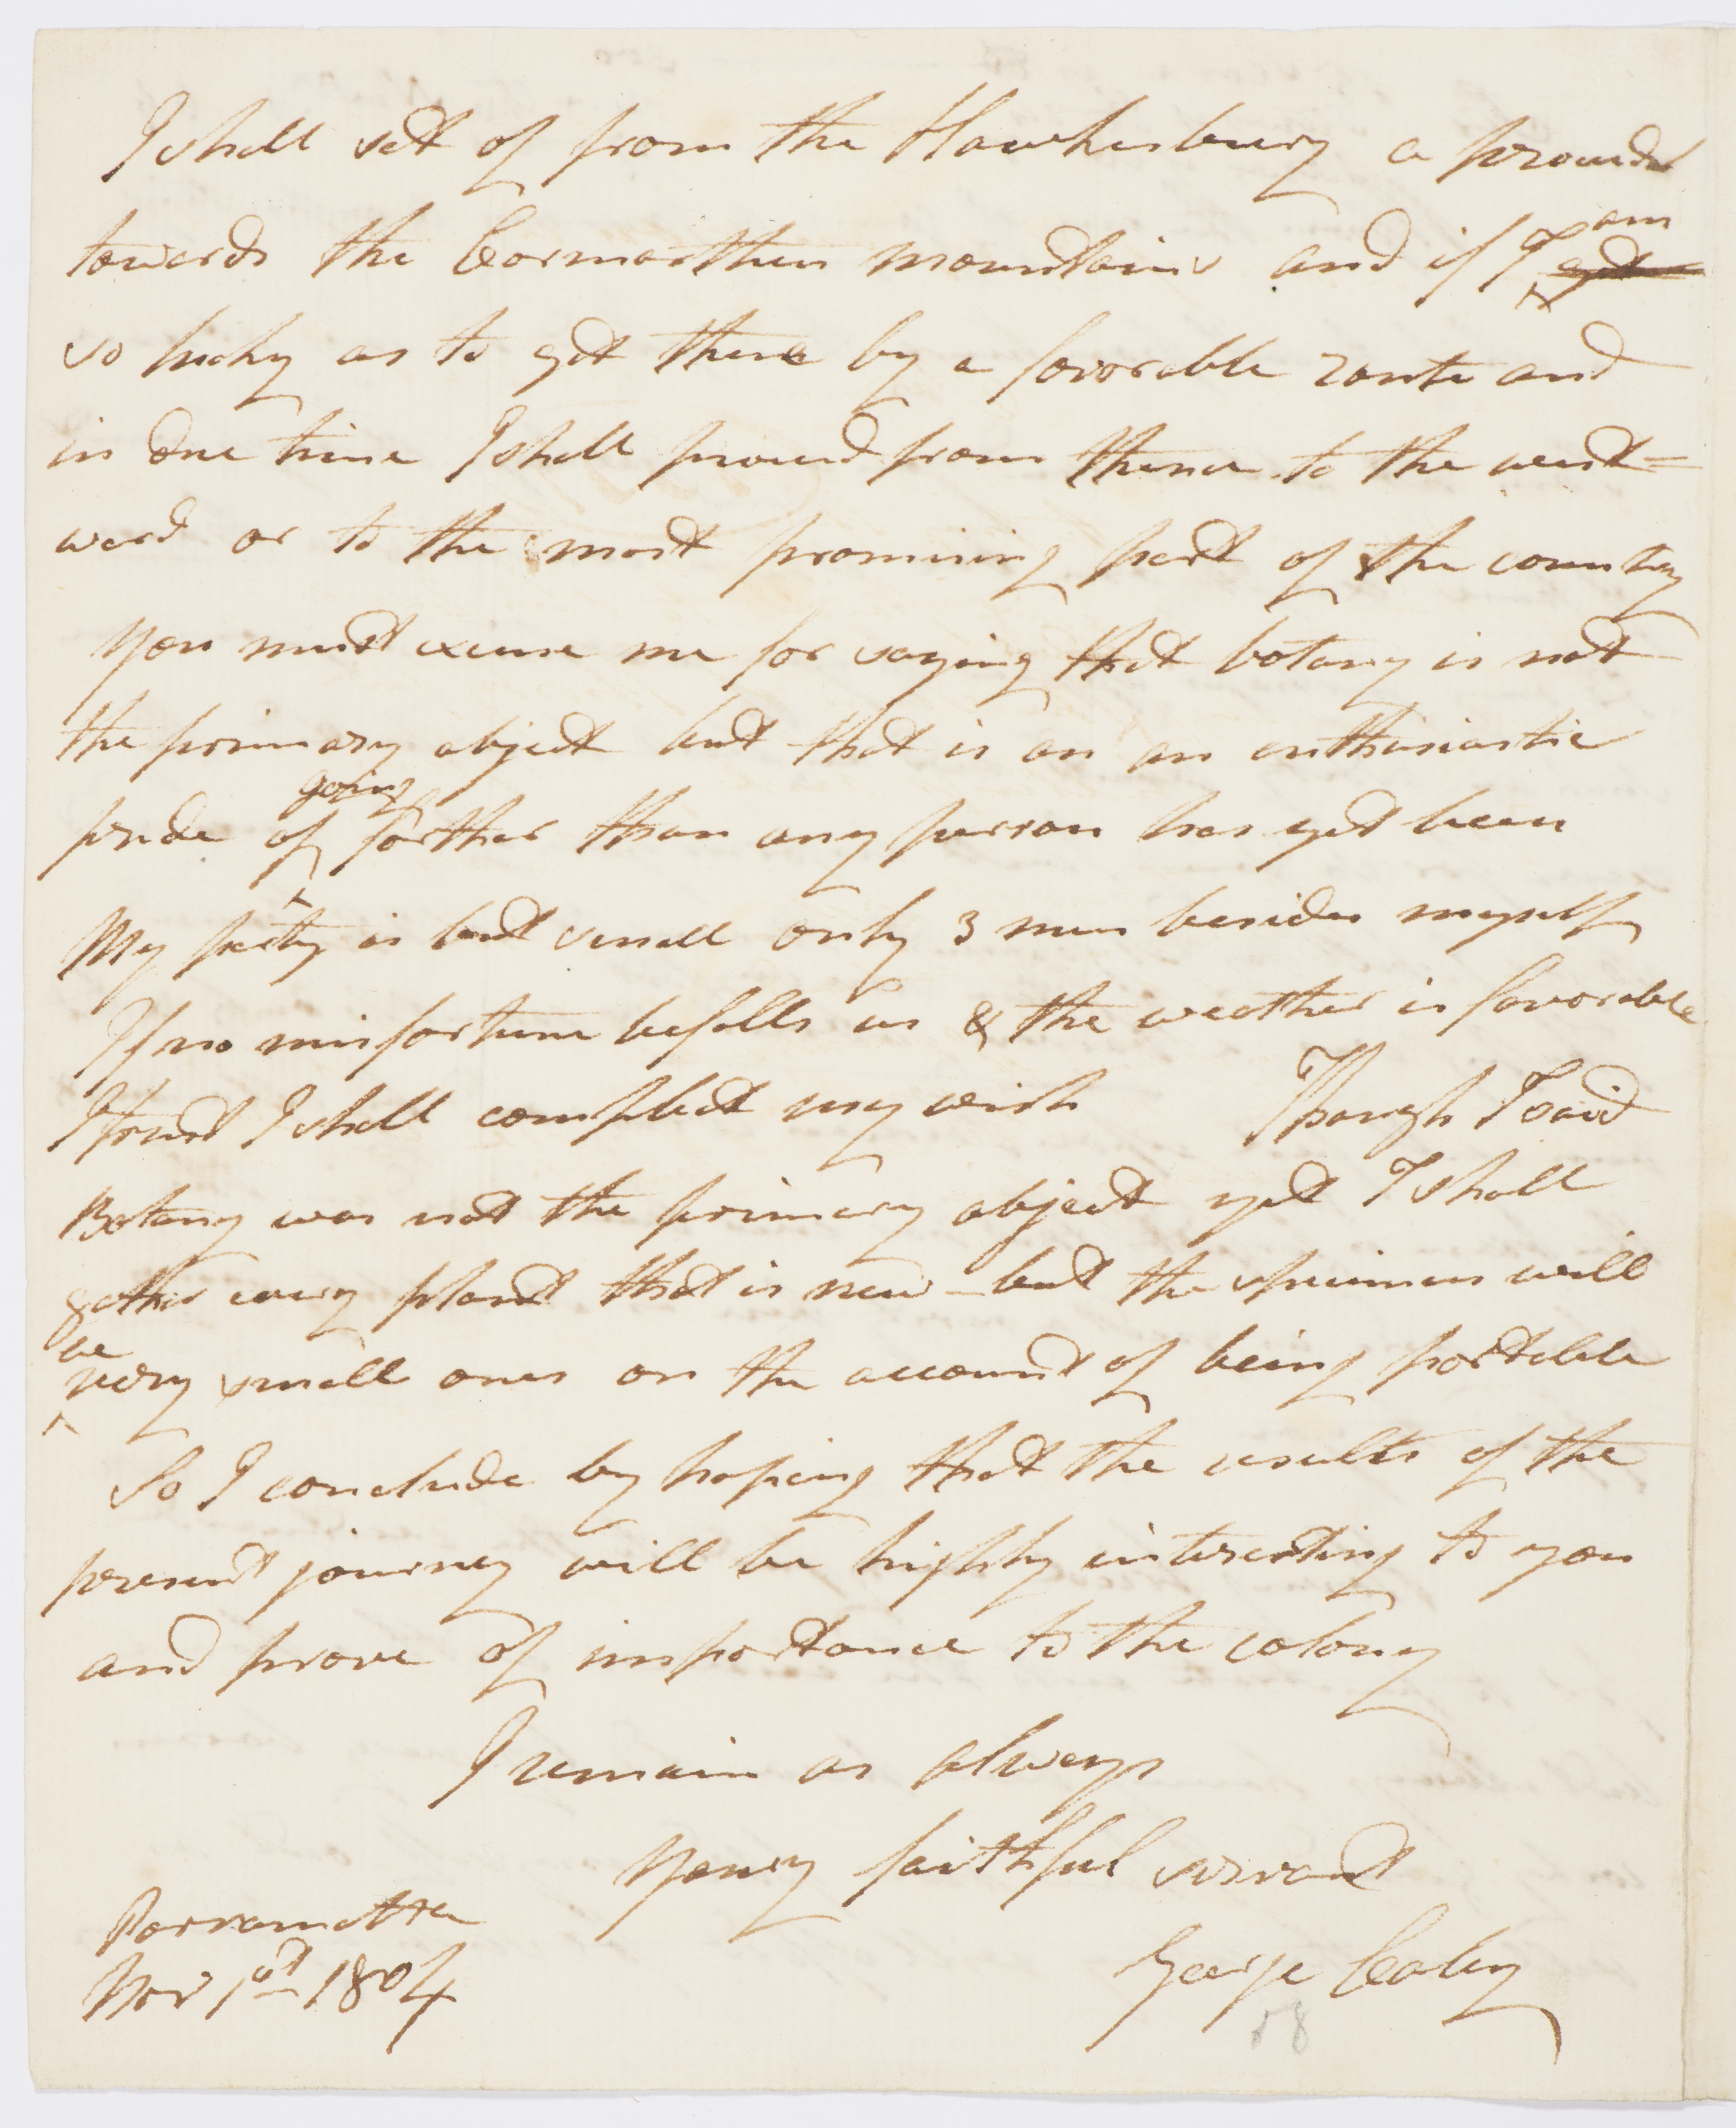 I shall set of from the Hawkesbury & proceed
towards the Carmarthen mountains and if I am get
so lucky as to get there by a favorable route and
in due time I shall proceed from thence to the west=
ward or to the most promising part of the country
You must excuse me for saying that botany is not
the primary object but that is on an enthusiastic
pride of going farther than any person has yet been
My party is but small only 3 men besides myself
If no misfortune befalls us & the weather is favorable
I trust I shall compleat my wish Though I said
Botany was not the primary object yet I shall
gather every plant that is new - but the specimens will
be very small ones on the account of being portable
So I conclude by hoping that the results of the
present journey will be highly interesting to you
and prove of importance to the colony
I remain as always
Your faithful servant
George Caley
Parramatta
Novr 1st 1804
58